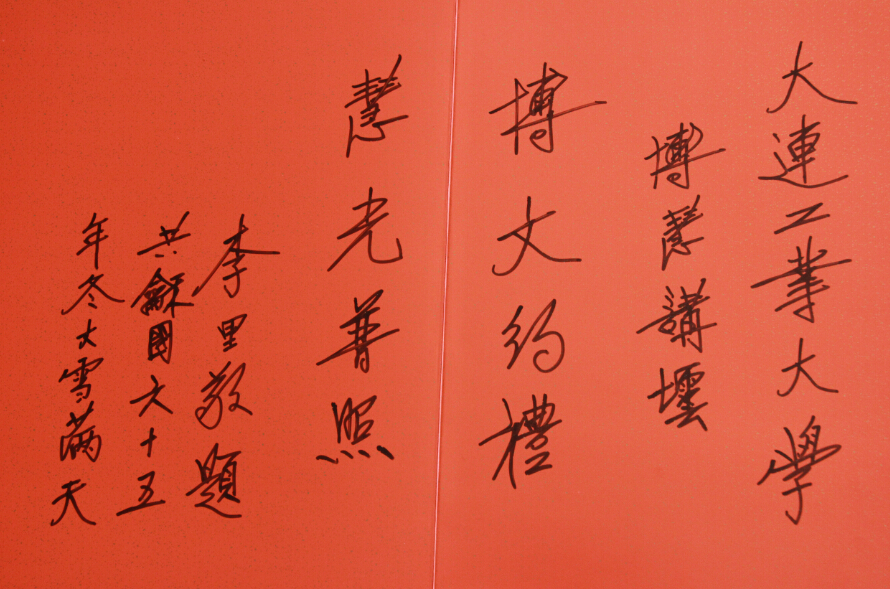 大連工業大學
博慧講壇
博文約禮
慧光普照
李里敬題
共龢國六十五
年冬大雪滿天